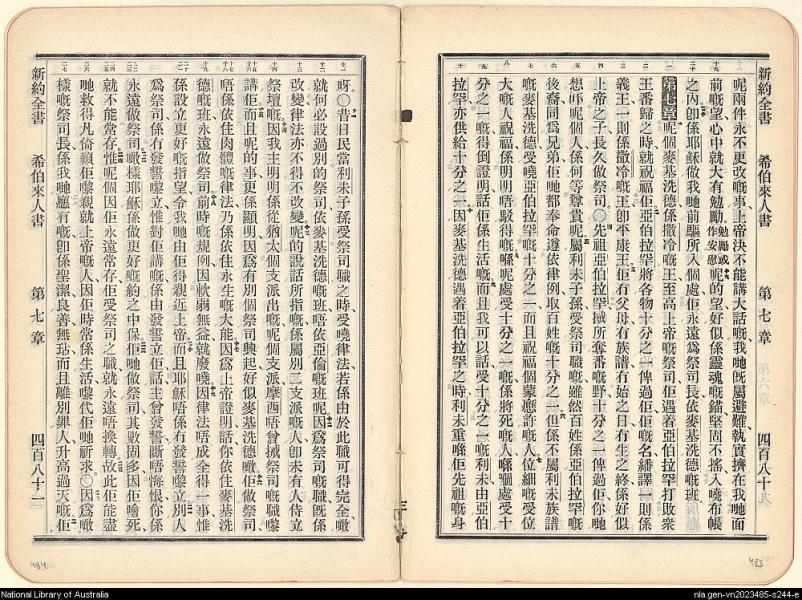 新約全書 希伯來人書 第七章 四百八十
呢兩件永不更改嘅事上帝決不能講大話嘅我哋既屬避難執實擠在我哋面
前嘅望心中就大有勉勵勉勵或作安慰呢的望好似係靈魂嘅錨堅固不搖入嘵布帳
之內卽係耶穌做我哋前驅所入個處佢永遠爲祭司長依麥基洗德嘅班
第七章呢個麥基洗德係撒冷嘅王至高上帝嘅祭司佢遇着亞伯拉罕打敗衆
王番歸之時就祝福佢亞伯拉罕將各物十分之一俾過佢佢嘅名繙譯一則係
義王一則係撒冷嘅王卽平康王佢冇父母冇族譜冇始之日冇生之終係好似
上帝之子長久做祭司〇先祖亞伯拉罕搣所奪番嘅野十分之一俾過佢你哋
想吓呢個人係何等尊貴呢屬利未子孫受祭司職嘅雖然百姓係亞伯拉罕嘅
後裔同爲兄弟佢哋都奉命遵依律例取百姓嘅十分之一但係不屬利未族譜
嘅麥基洗德受嘵亞伯拉罕嘅十分之一而且祝福個蒙應許嘅人位細嘅受位
大嘅人祝福係明明唔駁得嘅喺呢處受十分之一嘅係將死嘅人喺嗰處受十
分之一嘅得倒證明話佢係生活嘅而且我可以話受十分之一嘅利未由亞伯
拉罕亦供給十分之一因麥基洗德遇着亞伯拉罕之時利未重喺佢先祖嘅身
呀〇昔日民當利未子孫受祭司職之時受嘵律法若係由於此職可得完全噉
就何必設過別的祭司依麥基洗德嘅班唔依亞倫嘅班呢因爲祭司嘅職旣係
改變律法亦不得不改變呢的說話所指嘅係屬別一支派嘅人卽未有人侍立
祭壇嘅因我主明明係從猶太個支派出嘅呢個支派摩西唔曾搣祭司嘅職嚟
講佢而且呢的事更係顯明因爲有別個祭司興起好似麥基洗德噉佢做祭司
唔係依住肉體嘅律法乃係依住永生嘅大能因爲上帝證明話你依住麥基洗
德嘅班永遠做祭司前時嘅規例因軟弱無益就廢嘵因律法唔成全得一事惟
係設立更好嘅指望令我哋由佢得親近上帝而且耶穌唔係冇發誓嚟立別人
爲祭司係冇發誓嚟立惟對佢講嘅係由發誓立佢話主曾發誓斷唔悔恨你係
永遠做祭司噉樣耶穌係做更好嘅約之中保佢哋做祭司其數固多因佢噲死
就不能常存惟呢個因佢永遠常存佢受祭司之職就永遠唔換轉故此佢能盡
哋救得凡倚賴佢嚟親就上帝嘅人因佢時常係生活嚟代佢哋祈求〇因爲噉
樣嘅祭司長係我哋應有嘅卽係聖潔良善無玷而且離別罪人升高過天嘅佢
新約全書 希伯來人書 第七章 四百八十一
484
483
National Library of Australia
nla.gen-vn2023485-s244-e